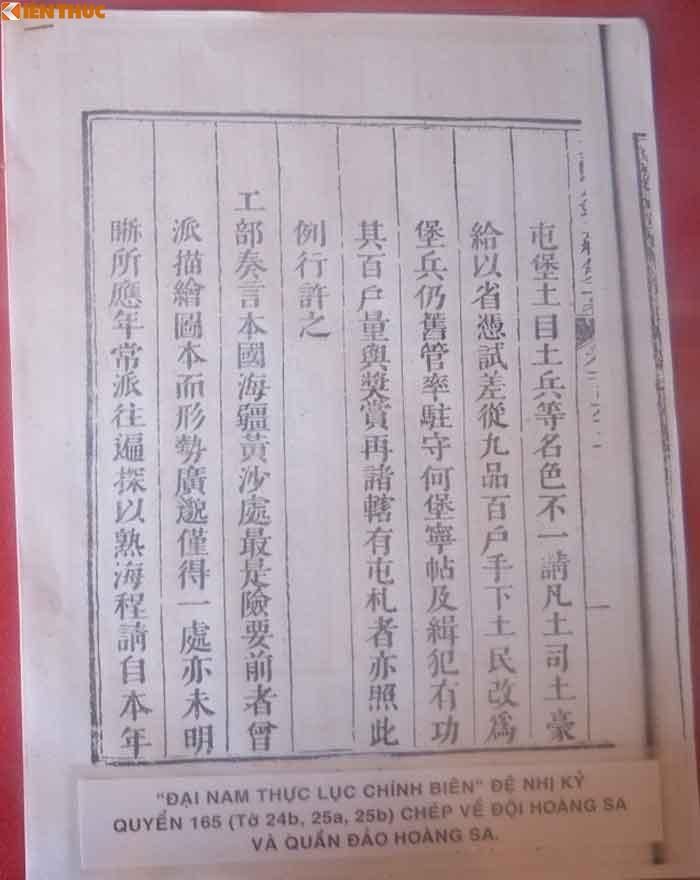 KIẾN THỨC
屯堡土目土兵等名色不一請凡土司土豪
給以省憑試差從九品百戶手下土民改為
堡兵仍舊管率駐守何堡寧帖及緝犯有功
其百戶量與獎賞再諸轄有屯札者亦照此
例行許之
工部奏言本國海疆黃沙處最是險要前者曾
派描繪圖本而形勢廣邈僅得一處亦未明
晰所應年常派往遍探以熟海程請自本年
"ĐẠI NAM THỰC LỤC CHÍNH BIÊN" ĐỆ NHỊ KỶ
QUYỂN 165 (Tờ 24b, 25a, 25b) CHÉP VỀ ĐỘI HOÀNG SA
VÀ QUẦN ĐẢO HOÀNG SA.